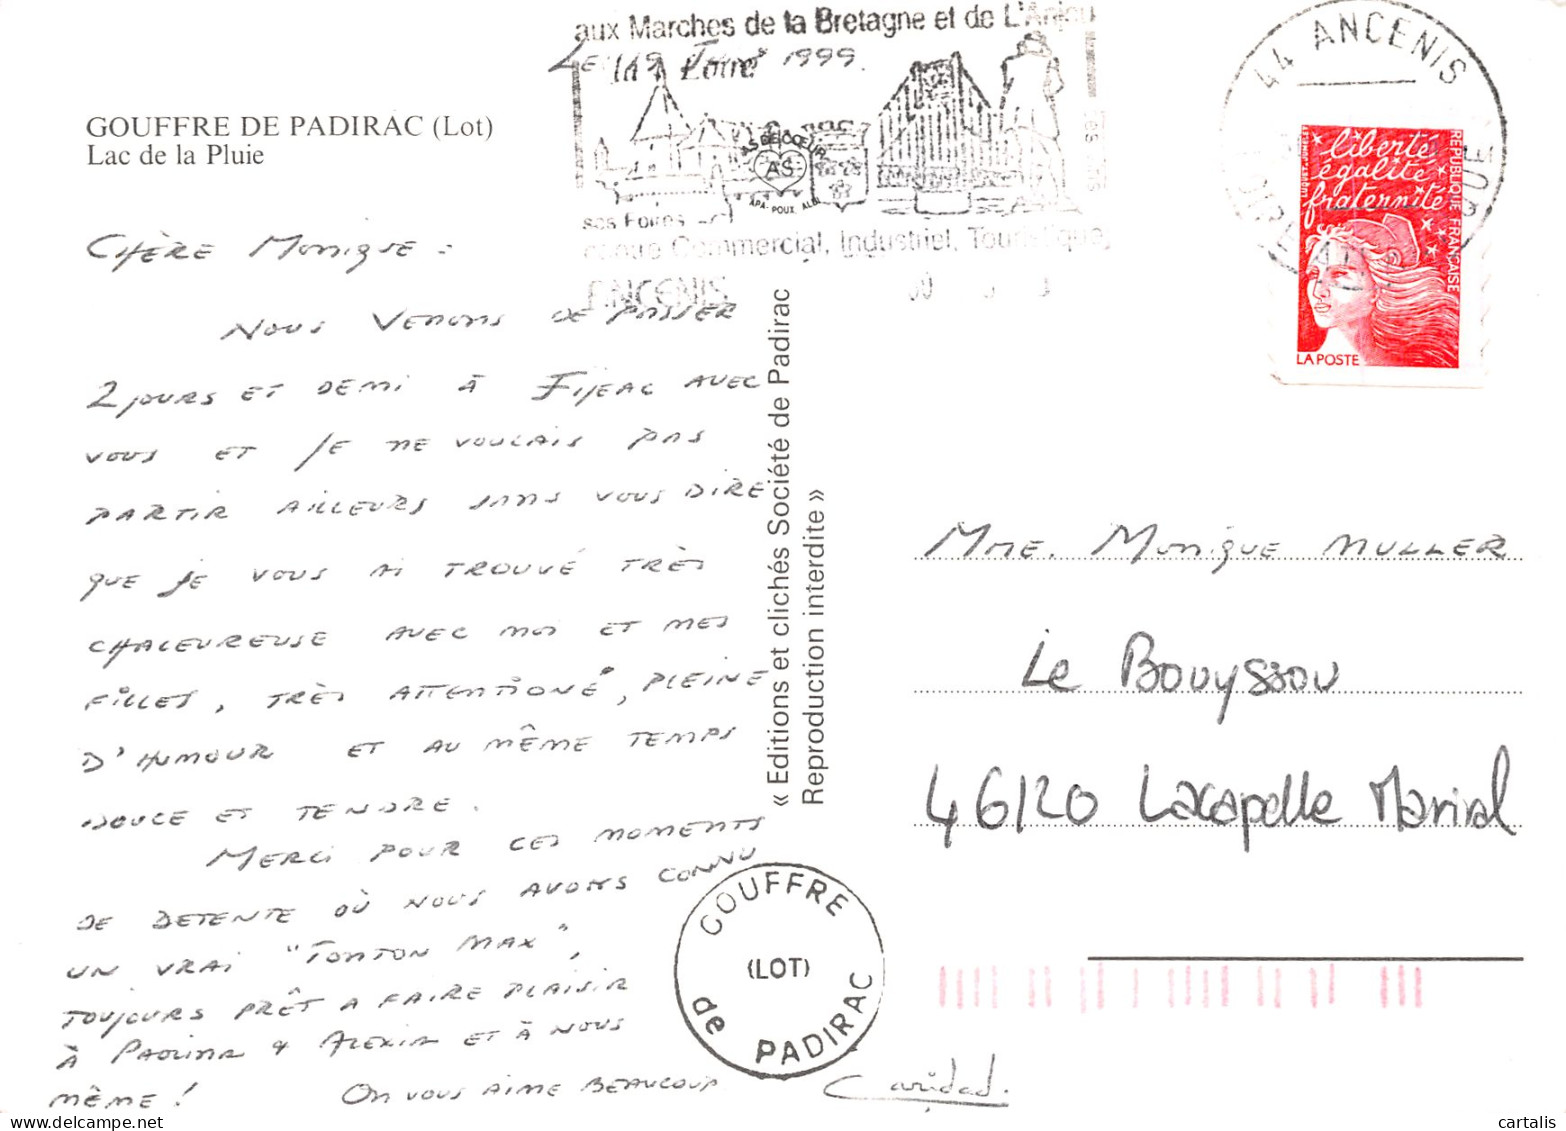 aux Marches de la Bretagne et de L'Anjou
Le 19 1999.
la Loire
44 ANCENIS
GOUFFRE DE PADIRAC (Lot)
Lac de la Pluie
AS DE CŒUR
AS
APA-POUX ALBI
ses Foires
Centre Commercial, Industriel, Touristique,
ANCENIS
liberté
égalité
fraternité
REPUBLIQUE FRANÇAISE
LA POSTE
Chère Monique :
Nous venons de passer
2 jours et demi à Fijeac avec
vous et je ne voulais pas
partir ailleurs sans vous dire
que je vous ai trouvé très
chaleureuse avec moi et mes
filles, très attentioné, pleine
d'humour et au même temps
douce et tendre.
Merci pour ces moments
de detente où nous avons connu
un vrai "Tonton Max",
toujours prêt a faire plaisir
à Paolina & Alexia et à nous
même ! On vous aime beaucoup
Caridad.
« Editions et clichés Société de Padirac
Reproduction interdite »
Mme. Monique MULLER
Le Bouyssou
46120 Lacapelle Marival
GOUFFRE
(LOT)
de PADIRAC
cartalis
www.delcampe.net